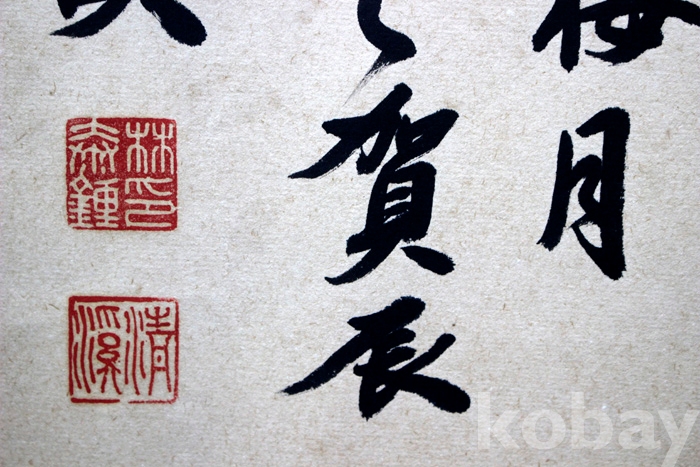 梅月
賀辰
林印
泰鍾
清溪
kobay